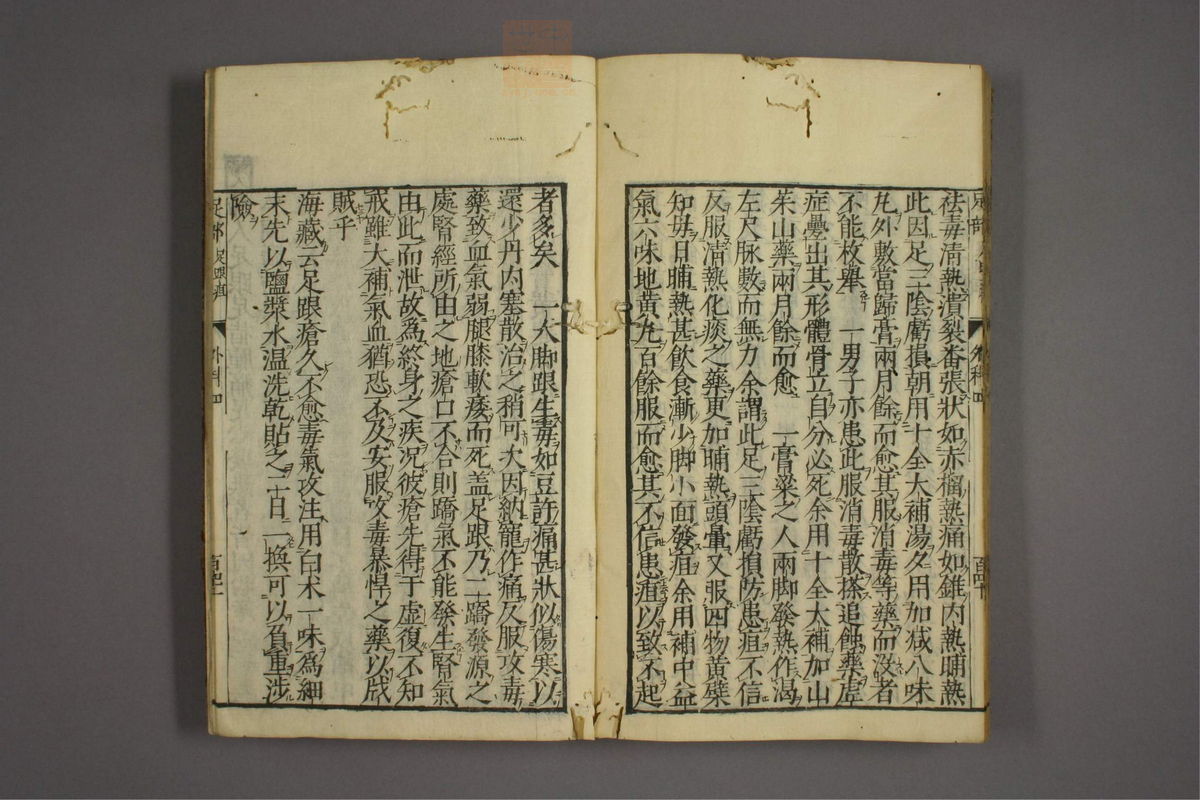 祛毒清熱潰裂番張狀如赤榴熱痛如錐內熱晡熱
此因足三陰虧損朝用十全大補湯夕用加減八味
丸外敷當歸膏兩月餘而愈其服消毒等藥而沒者
不能枚舉　一男子亦患此服消毒散搽追蝕藥虛
症疊出其形體骨立自分必死余用十全大補加山
茱山藥兩月餘而愈　一膏粱之人兩脚發熱作渴
左尺脉數而無力余謂此足三陰虧損防患疽不信
反服清熱化痰之藥更加晡熱頭暈又服四物黃檗
知毋日晡熱甚飲食漸少脚小面發疽余用補中益
氣六味地黃丸百餘服而愈其不信患疽以致不起
者多矣　一大脚跟生毒如豆許痛甚狀似傷寒以
還少丹內塞散治之稍可大因納寵作痛反服攻毒
藥致血氣弱腿膝軟痿而死盖足跟乃二蹻發源之
處腎經所由之地瘡口不合則蹻氣不能發生腎氣
由此而泄故為終身之疾况彼瘡先得于虛復不知
戒雖大補氣血猶恐不及安服攻毒暴悍之藥以戕
賊乎
海藏云足跟瘡久不愈毒氣攻注用白术一味為細
末先以鹽漿水温洗乾貼之二日一換可以負重涉
險
足部 足跟疽 外科四